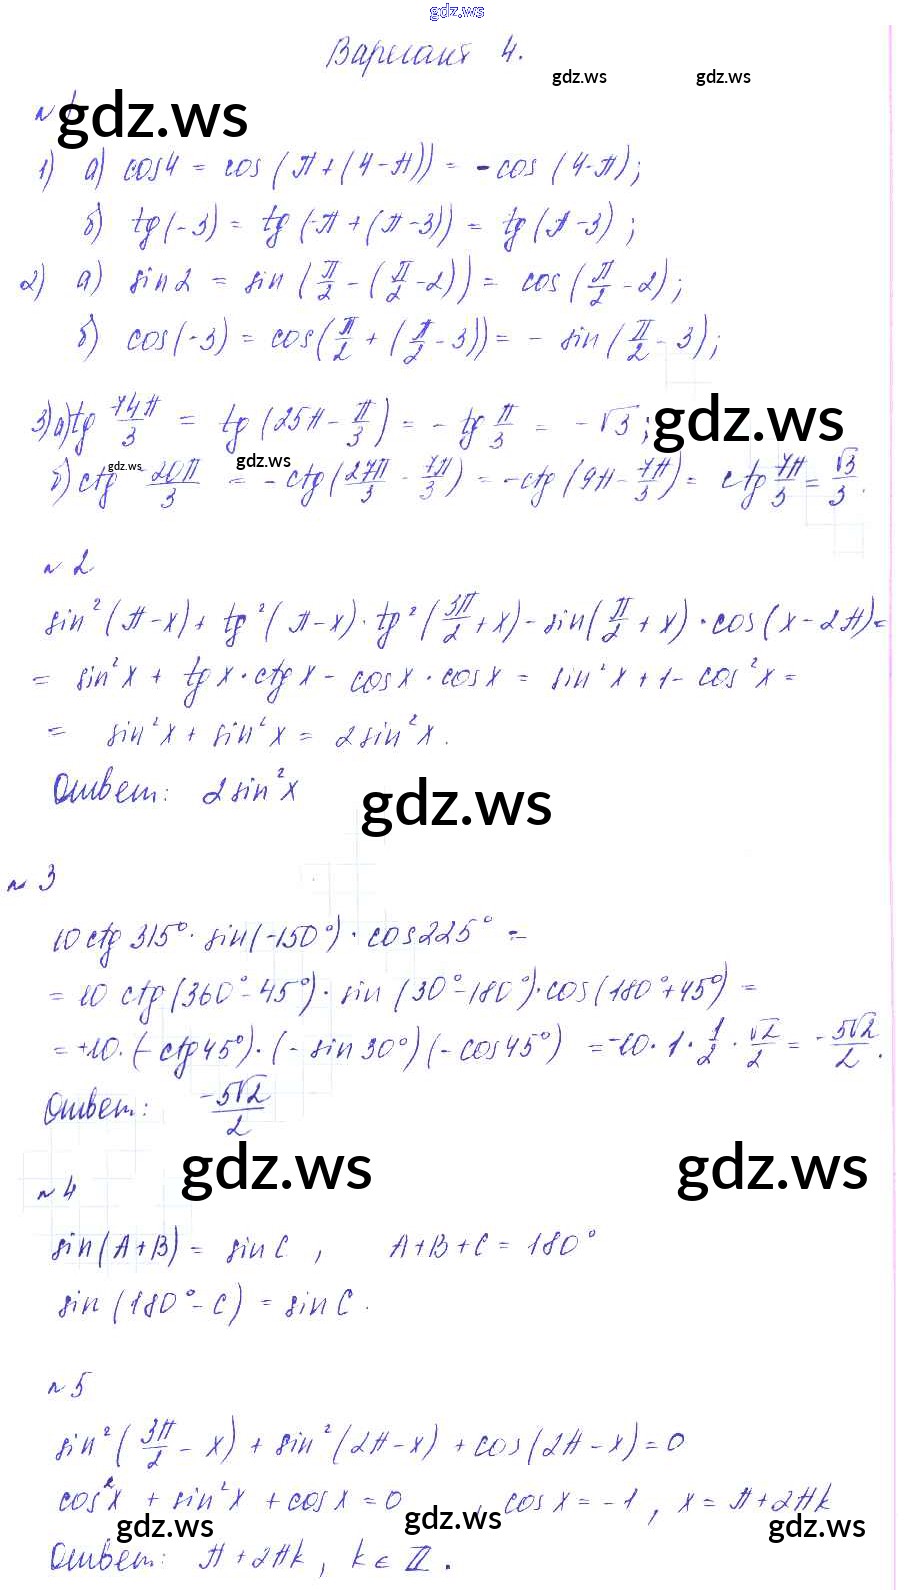 gdz.ws
Вариант 4.
gdz.ws gdz.ws
№ 1
gdz.ws
1) а) cos4 = cos (π + (4 - π)) = - cos (4-π);
б) tg(-3) = tg (-π + (π-3)) = tg(π-3);
2) а) sin2 = sin (π/2 - (π/2 - 2)) = cos (π/2 - 2);
б) cos(-3) = cos(π/2 + (π/2 - 3)) = - sin (π/2 - 3);
gdz.ws
3) а) tg 74π/3 = tg (25π - π/3) = - tg π/3 = - √3;
gdz.ws gdz.ws
б) ctg - 20π/3 = - ctg (27π/3 - 7π/3) = - ctg (9π - 7π/3) = ctg 7π/3 = √3/3.
№ 2
sin² (π-x) + tg² (π-x) · tg² (3π/2 + x) - sin(π/2 + x) · cos (x - 2π) =
= sin² x + tg x · ctg x - cos x · cos x = sin² x + 1 - cos² x =
= sin² x + sin² x = 2 sin² x.
Ответ: 2 sin² x
gdz.ws
№ 3
10 ctg 315° · sin(-150°) · cos 225° =
= 10 ctg (360° - 45°) · sin (30° - 180°) · cos (180° + 45°) =
= +10 · (- ctg 45°) · (- sin 30°) (- cos 45°) = -10 · 1 · 1/2 · √2/2 = - 5√2/2.
Ответ: -5√2/2
gdz.ws gdz.ws
№ 4
sin (A+B) = sin C , A+B+C = 180°
sin (180° - C) = sin C.
№ 5
sin² (3π/2 - x) + sin² (2π - x) + cos (2π - x) = 0
cos² x + sin² x + cos x = 0 , cos x = -1 , x = π + 2πk
gdz.ws gdz.ws gdz.ws
Ответ: π + 2πk, k ∈ Z.